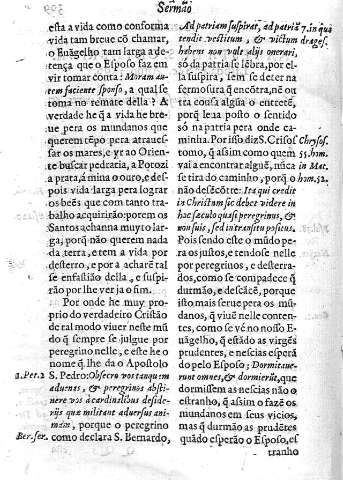 Sermão
esta a vida como conforma
vida tam breue cõ chamar,
o Euãgelho tam larga a de-
tença que o Esposo faz em
vir tomar conta: Moram au-
tem faciente sponso, a qual se
toma no remate della? A
verdade he q̃ a vida he bre-
ue pera os mundanos que
querem tẽpo pera atraues-
sar os mares, e yr ao Orien-
te buscar pedraria, a Potozi
a prata, á mina o ouro, e des-
pois vida larga pera lograr
os beẽs que com tanto tra-
balho acquirirão: porem os
Santos achanna muyto lar-
ga, porq̃ não querem nada
da terra, e tem a vida por
desterro, e por a acharẽ ral
se enfastião della, e suspi-
rão por lhe ver ja o fim.
Por onde he muy pro-
prio do verdadeiro Cristão
de tal modo viuer neste mũ
do q̃ sempre se julgue por
peregrino nelle, e este he o
nome q̃ lhe da o Apostolo
1.Pet.2 S. Pedro: Obsecro vos tanquam
aduenas, & peregrinos absti-
nere vos à carnalibus deside-
rijs quæ militant aduersus ani-
mam, porque o peregrino
Ber.ser. como declara S. Bernardo,
Ad patriam suspirat, ad patriã 7. in qua
tendit vestitum, & victum drages.
habens non vult alijs onerari,
só da patria se lẽbra, por el-
la suspira, sem se deter na
fermosura q̃ encõtra, nẽ ou
tra cousa algũa o entretẽ,
porq̃ leua posto o sentido
só na patria pera onde ca-
minha. Por isso diz S. Crisos Chrysos.
tomo, q̃ assim como quem 55. hom.
vai a encontrar alguẽ, nũca in Mat.
se tira do caminho, porq̃ o hom. 52.
não desẽcõtre: Ita qui credit
in Christum sic debet videre in
hoc sæculo quasi peregrinus, &
non suis, sed in transitu positus.
Pois sendo este o mũdo pe-
ra os justos, e tendose nelle
por peregrinos, e desterra-
dos, como se compadece q̃
durmão, e descãcẽ, porque
isto mais serue pera os mũ-
danos, q̃ viuẽ nelle conten-
tes, como se vé no nosso E-
uãgelho, q̃ estãdo as virgẽs
prudentes, e nescias esperã
do pelo Esposo; Dormitaue-
runt omnes, & dormierũt, que
dormissem as nescias não o
estranho, q̃ assim o fazẽ os
mundanos em seus vicios,
mas q̃ durmão as prudẽtes
quãdo esperão o Esposo, es
tranho